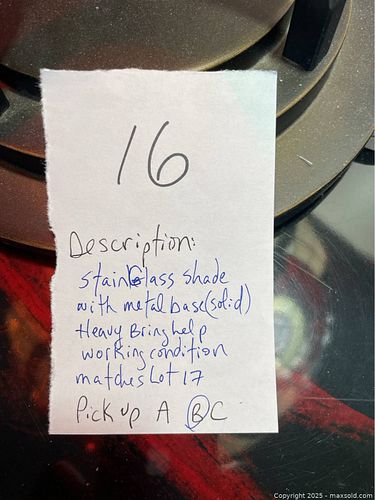 16
Description:
Stain Glass shade
with metal base(solid)
Heavy Bring help
working condition
matches Lot 17
Pick up A B C
Copyright 2025 - maxsold.com